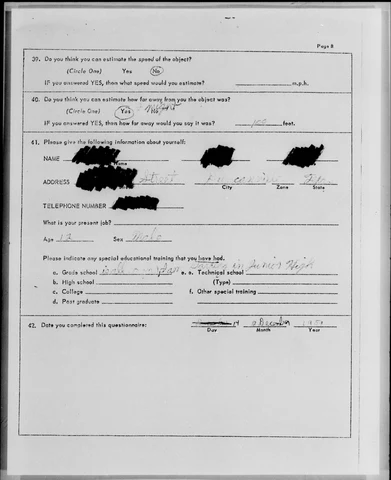 Page 8
39. Do you think you can estimate the speed of the object?
(Circle One) Yes No
IF you answered YES, then what speed would you estimate? m.p.h.
40. Do you think you can estimate how far away from you the object was?
(Circle One) Yes No
IF you answered YES, then how far away would you say it was? feet.
41. Please give the following information about yourself:
NAME
Name
ADDRESS Street
City Zone State
TELEPHONE NUMBER
What is your present job?
Age 12 Sex Male
Please indicate any special educational training that you have had.
a. Grade school e. Technical school in Junior High
b. High school (Type)
c. College f. Other special training
d. Post graduate
42. Date you completed this questionnaire: December
Day Month Year